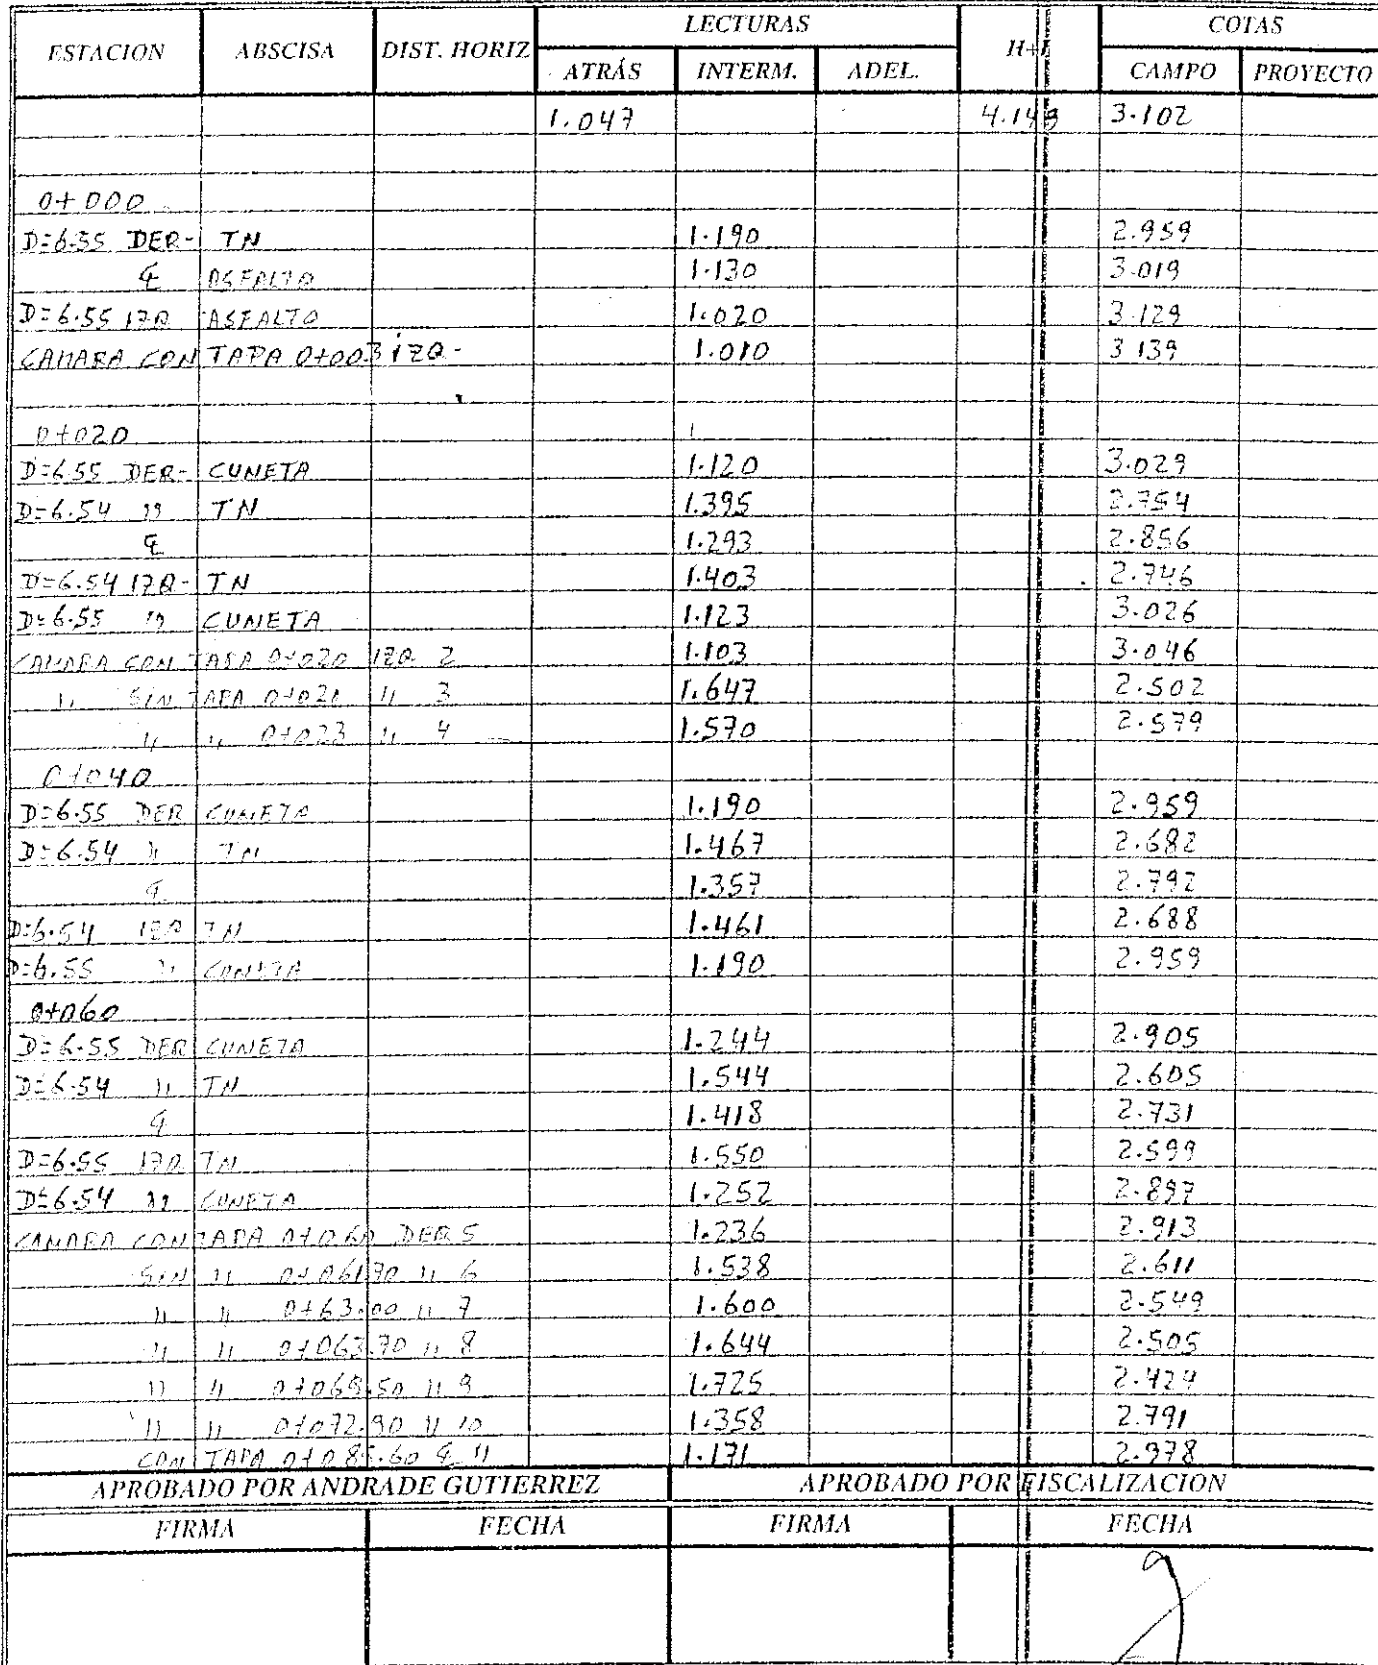 ESTACION ABSCISA DIST. HORIZ LECTURAS H+I COTAS
ATRÁS INTERM. ADEL. CAMPO PROYECTO
1.047 4.149 3.102
0+000
D=6.55 DER- TN 1.190 2.959
℄ ASFALTO 1.130 3.019
D=6.55 IZQ ASFALTO 1.020 3.129
CAMARA CON TAPA 0+003 IZQ- 1.010 3.139
0+020
D=6.55 DER- CUNETA 1.120 3.029
D=6.54 " TN 1.395 2.754
℄ 1.293 2.856
D=6.54 IZQ- TN 1.403 2.746
D=6.55 " CUNETA 1.123 3.026
CAMARA CON TAPA 0+020 IZQ 2 1.103 3.046
" SIN TAPA 0+021 " 3 1.647 2.502
" " 0+023 " 4 1.570 2.579
0+040
D=6.55 DER CUNETA 1.190 2.959
D=6.54 " TN 1.467 2.682
℄ 1.357 2.792
D=6.54 IZQ TN 1.461 2.688
D=6.55 " CUNETA 1.190 2.959
0+060
D=6.55 DER CUNETA 1.244 2.905
D=6.54 " TN 1.544 2.605
℄ 1.418 2.731
D=6.55 IZQ TN 1.550 2.599
D=6.54 " CUNETA 1.252 2.897
CAMARA CON TAPA 0+060 DER 5 1.236 2.913
SIN " 0+061.70 " 6 1.538 2.611
" " 0+63.00 " 7 1.600 2.549
" " 0+063.70 " 8 1.644 2.505
" " 0+069.50 " 9 1.725 2.424
" " 0+072.90 " 10 1.358 2.791
CON TAPA 0+085.60 ℄ 11 1.171 2.978
APROBADO POR ANDRADE GUTIERREZ APROBADO POR FISCALIZACION
FIRMA FECHA FIRMA FECHA